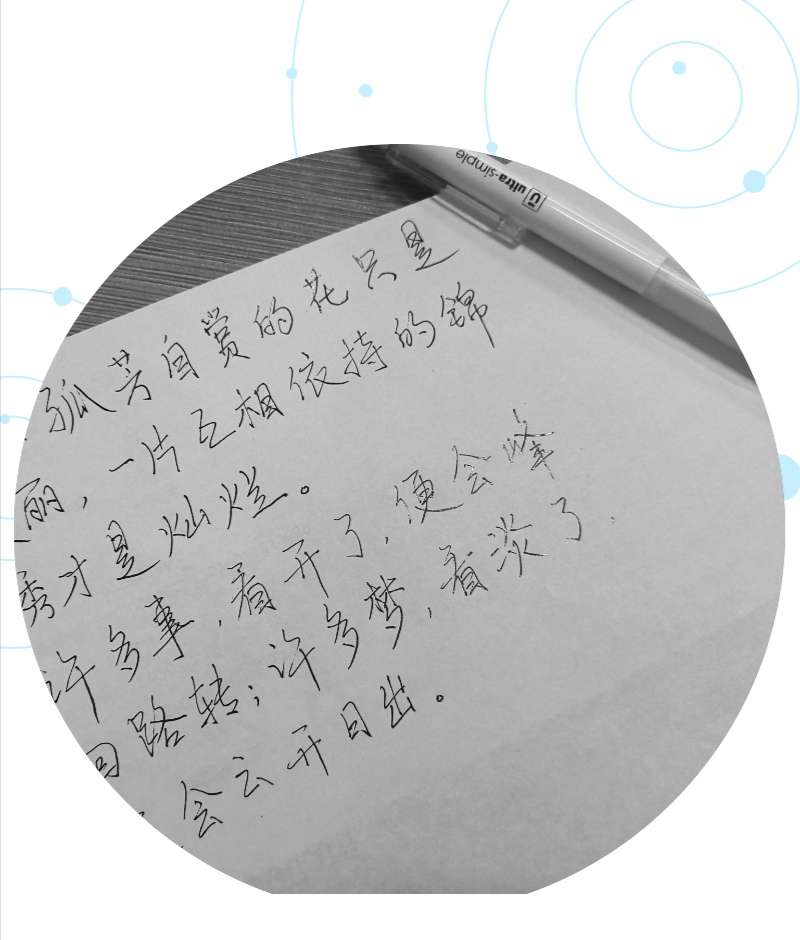 ultra-simple
孤芳自赏的花只是
丽，一片互相依持的锦
秀才是灿烂。
许多事，看开了，便会峰
回路转；许多梦，看淡了，
会云开日出。